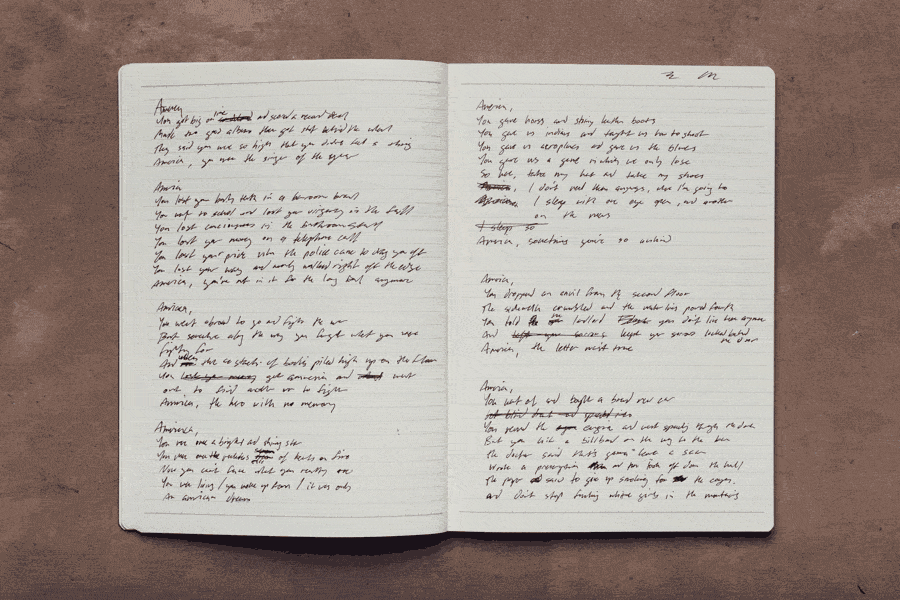 America
You got big on and scored a record deal
Made one good album then got shot behind the wheel
They said you were so high that you didn't feel a thing
America, you were the singer of the year
America
You lost your baby teeth in a barroom brawl
You went to school and lost your virginity in the fall
You lost consciousness in the bathroom stall
You lost your money on a telephone call
You lost your pride when the police came to drag you off
You lost your way and nearly walked right off the edge
America, you're not in it for the long haul anymore
America,
You went abroad to go and fight the war
But somewhere along the way you forgot what you were
fighting for
And when the stacks of bodies piled high up on the floor
You got amnesia and went
out to find another war to fight
America, the hero with no memory
America,
You were once a bright and shining star
You were once the of on fire
Now you can't face what you really are
You were lying / you woke up from / it was only
An american dream
America,
You gave horses and shiny leather boots
You gave us indians and taught us how to shoot
You gave us aeroplanes and gave us the blues
You gave us a game in which we only lose
So here, take my hat and take my shoes
America, I don't need them anyways, where I'm going to
I sleep with one eye open, and another
on the news
I sleep so
America, sometimes you're so unkind
America,
You dropped an anvil from the second floor
The sidewalk crumbled and the water line poured forth
You told the landlord you don't live here anymore
And kept your secrets locked behind
the door
America, the letter
America,
You went out and bought a brand new car
You revved the engine and went speeding through the dark
But you hit a billboard on the way to the bar
The doctor said that's gonna leave a scar
Wrote a prescription and
The paper said to give up smoking for the cancer
and don't stop fucking white girls in the